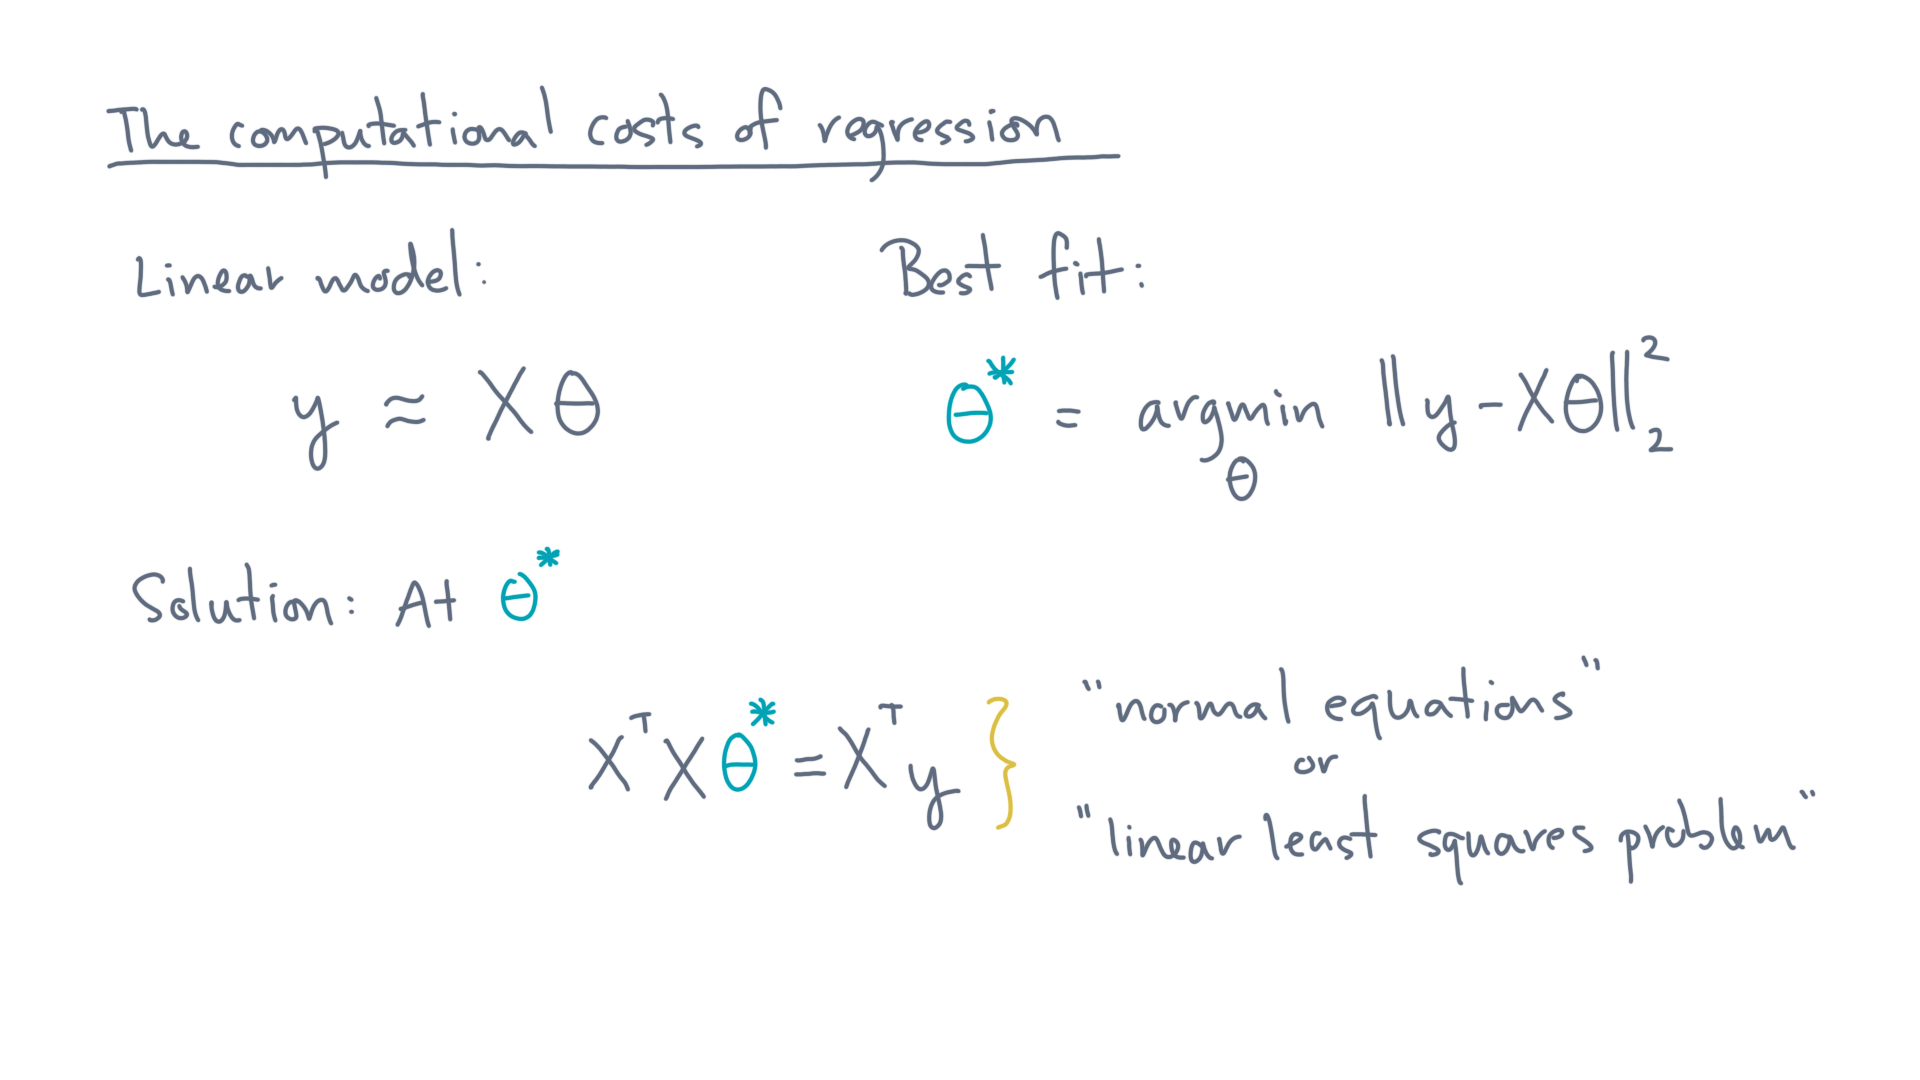 The computational costs of regression
Linear model:
y ≈ Xθ
Best fit:
θ* = argmin ‖y - Xθ‖₂²
θ
Solution: At θ*
XᵀXθ* = Xᵀy }
"normal equations"
or
"linear least squares problem"